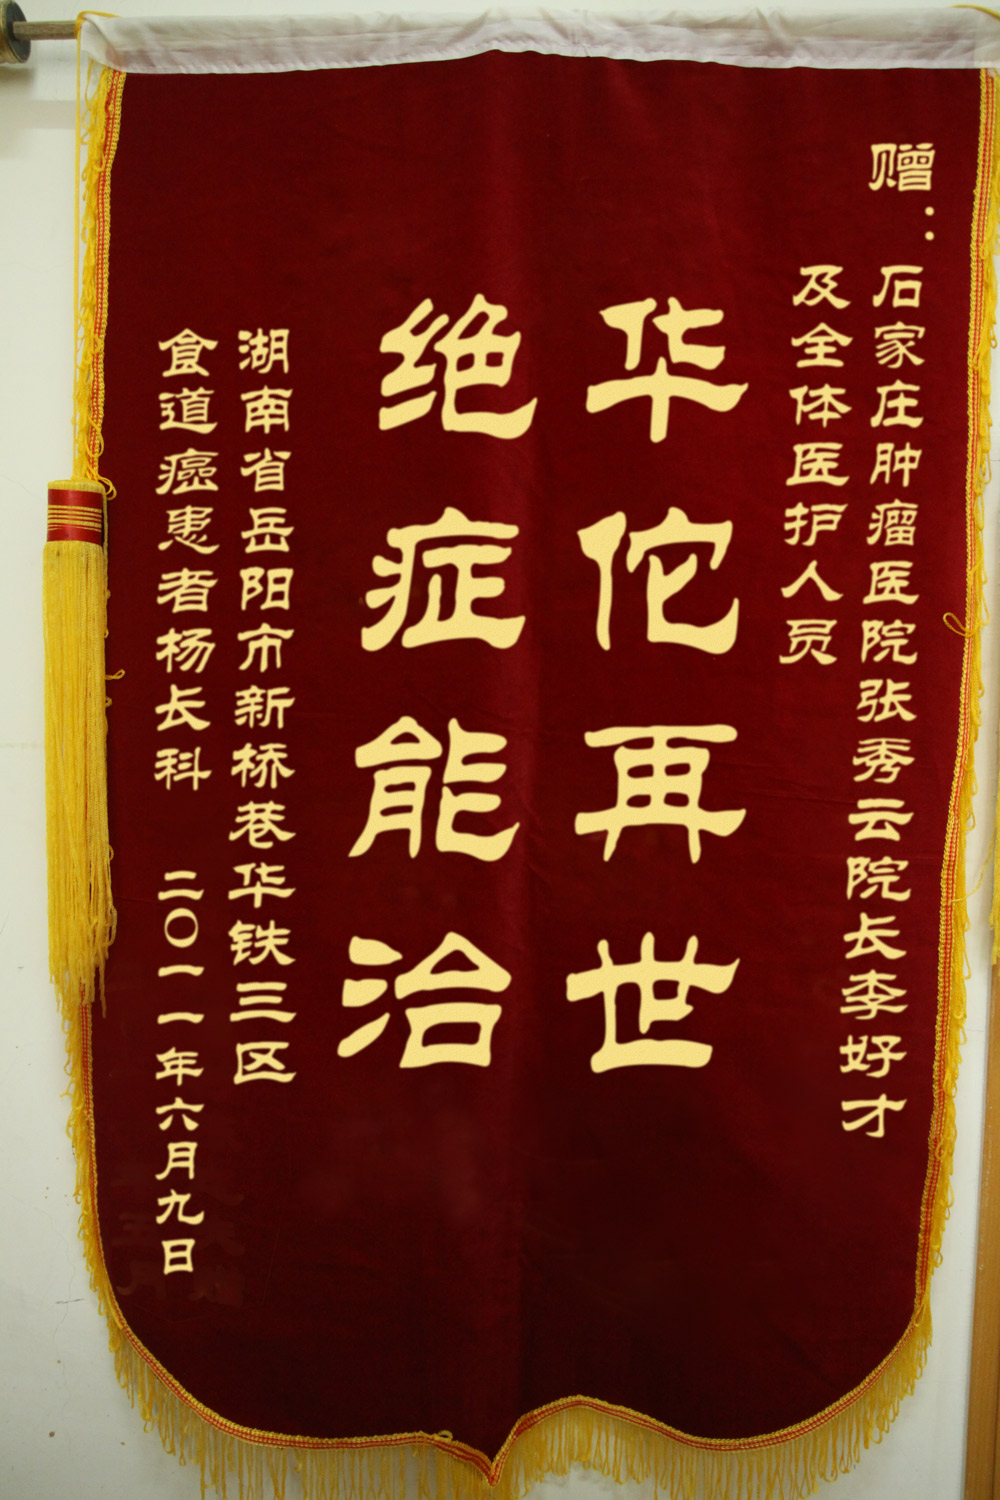 赠：
石家庄肿瘤医院张秀云院长李好才
及全体医护人员
华佗再世
绝症能治
湖南省岳阳市新桥巷华铁三区
食道癌患者杨长科 二〇一一年六月九日